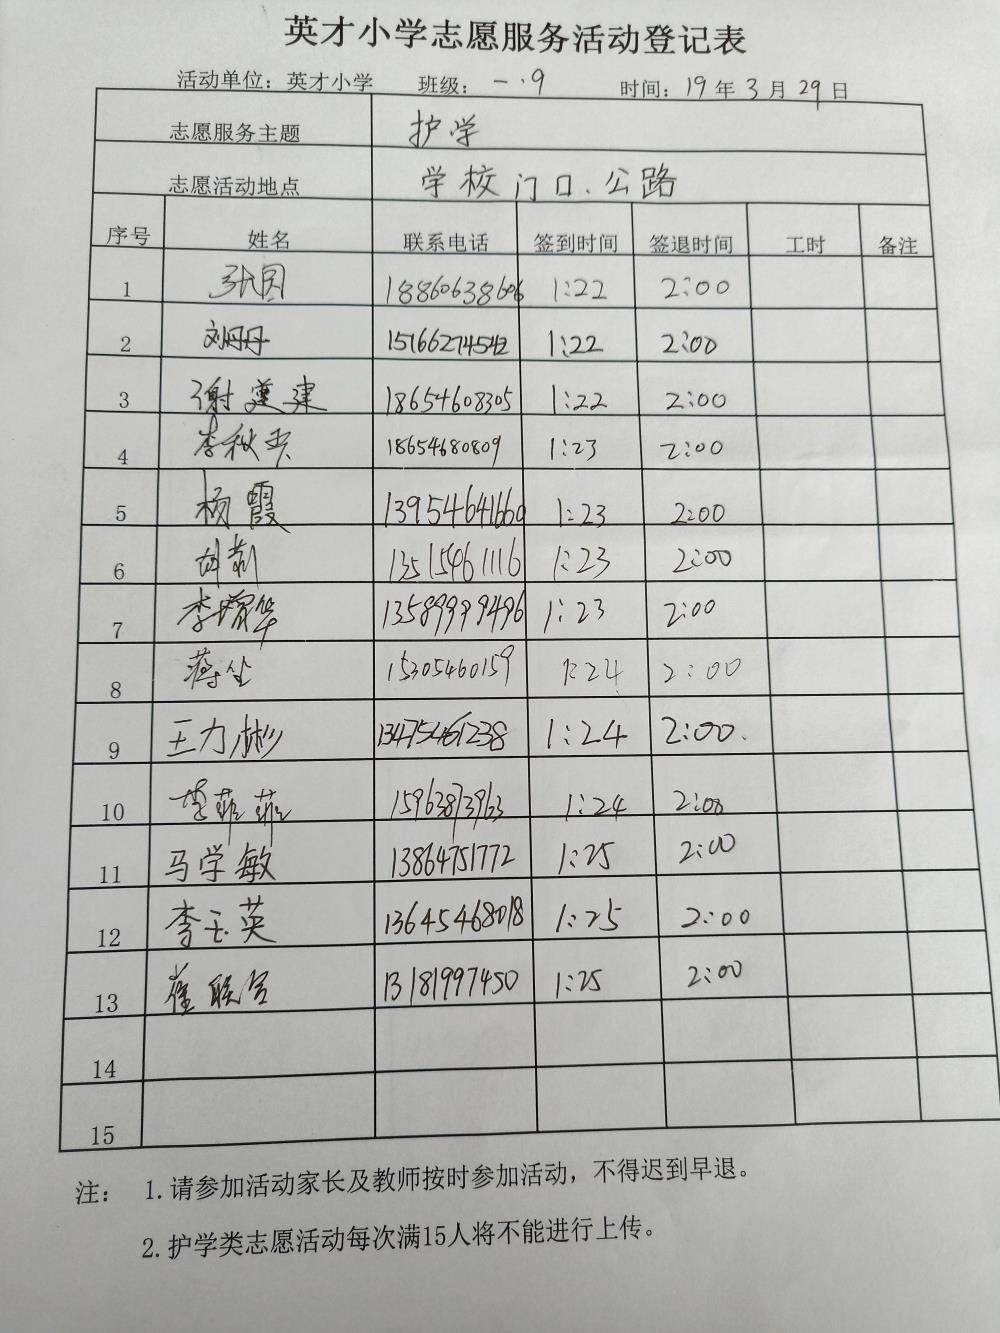 英才小学志愿服务活动登记表
活动单位：英才小学 班级：一.9 时间：19年3月29日
志愿服务主题 护学
志愿活动地点 学校门口、公路
序号 姓名 联系电话 签到时间 签退时间 工时 备注
1 18860638606 1:22 2:00
2 刘丹丹 15166274542 1:22 2:00
3 谢建 18654608305 1:22 2:00
4 李秋 18654680809 1:23 2:00
5 杨霞 13954641660 1:23 2:00
6 13515461116 1:23 2:00
7 李增华 13589999496 1:23 2:00
8 蒋 15305460159 1:24 2:00
9 王力彬 13475461238 1:24 2:00.
10 李菲菲 15963873963 1:24 2:00
11 马学敏 13864751772 1:25 2:00
12 李玉英 13645468018 1:25 2:00
13 崔联 13181997450 1:25 2:00
14
15
注： 1.请参加活动家长及教师按时参加活动，不得迟到早退。
2.护学类志愿活动每次满15人将不能进行上传。